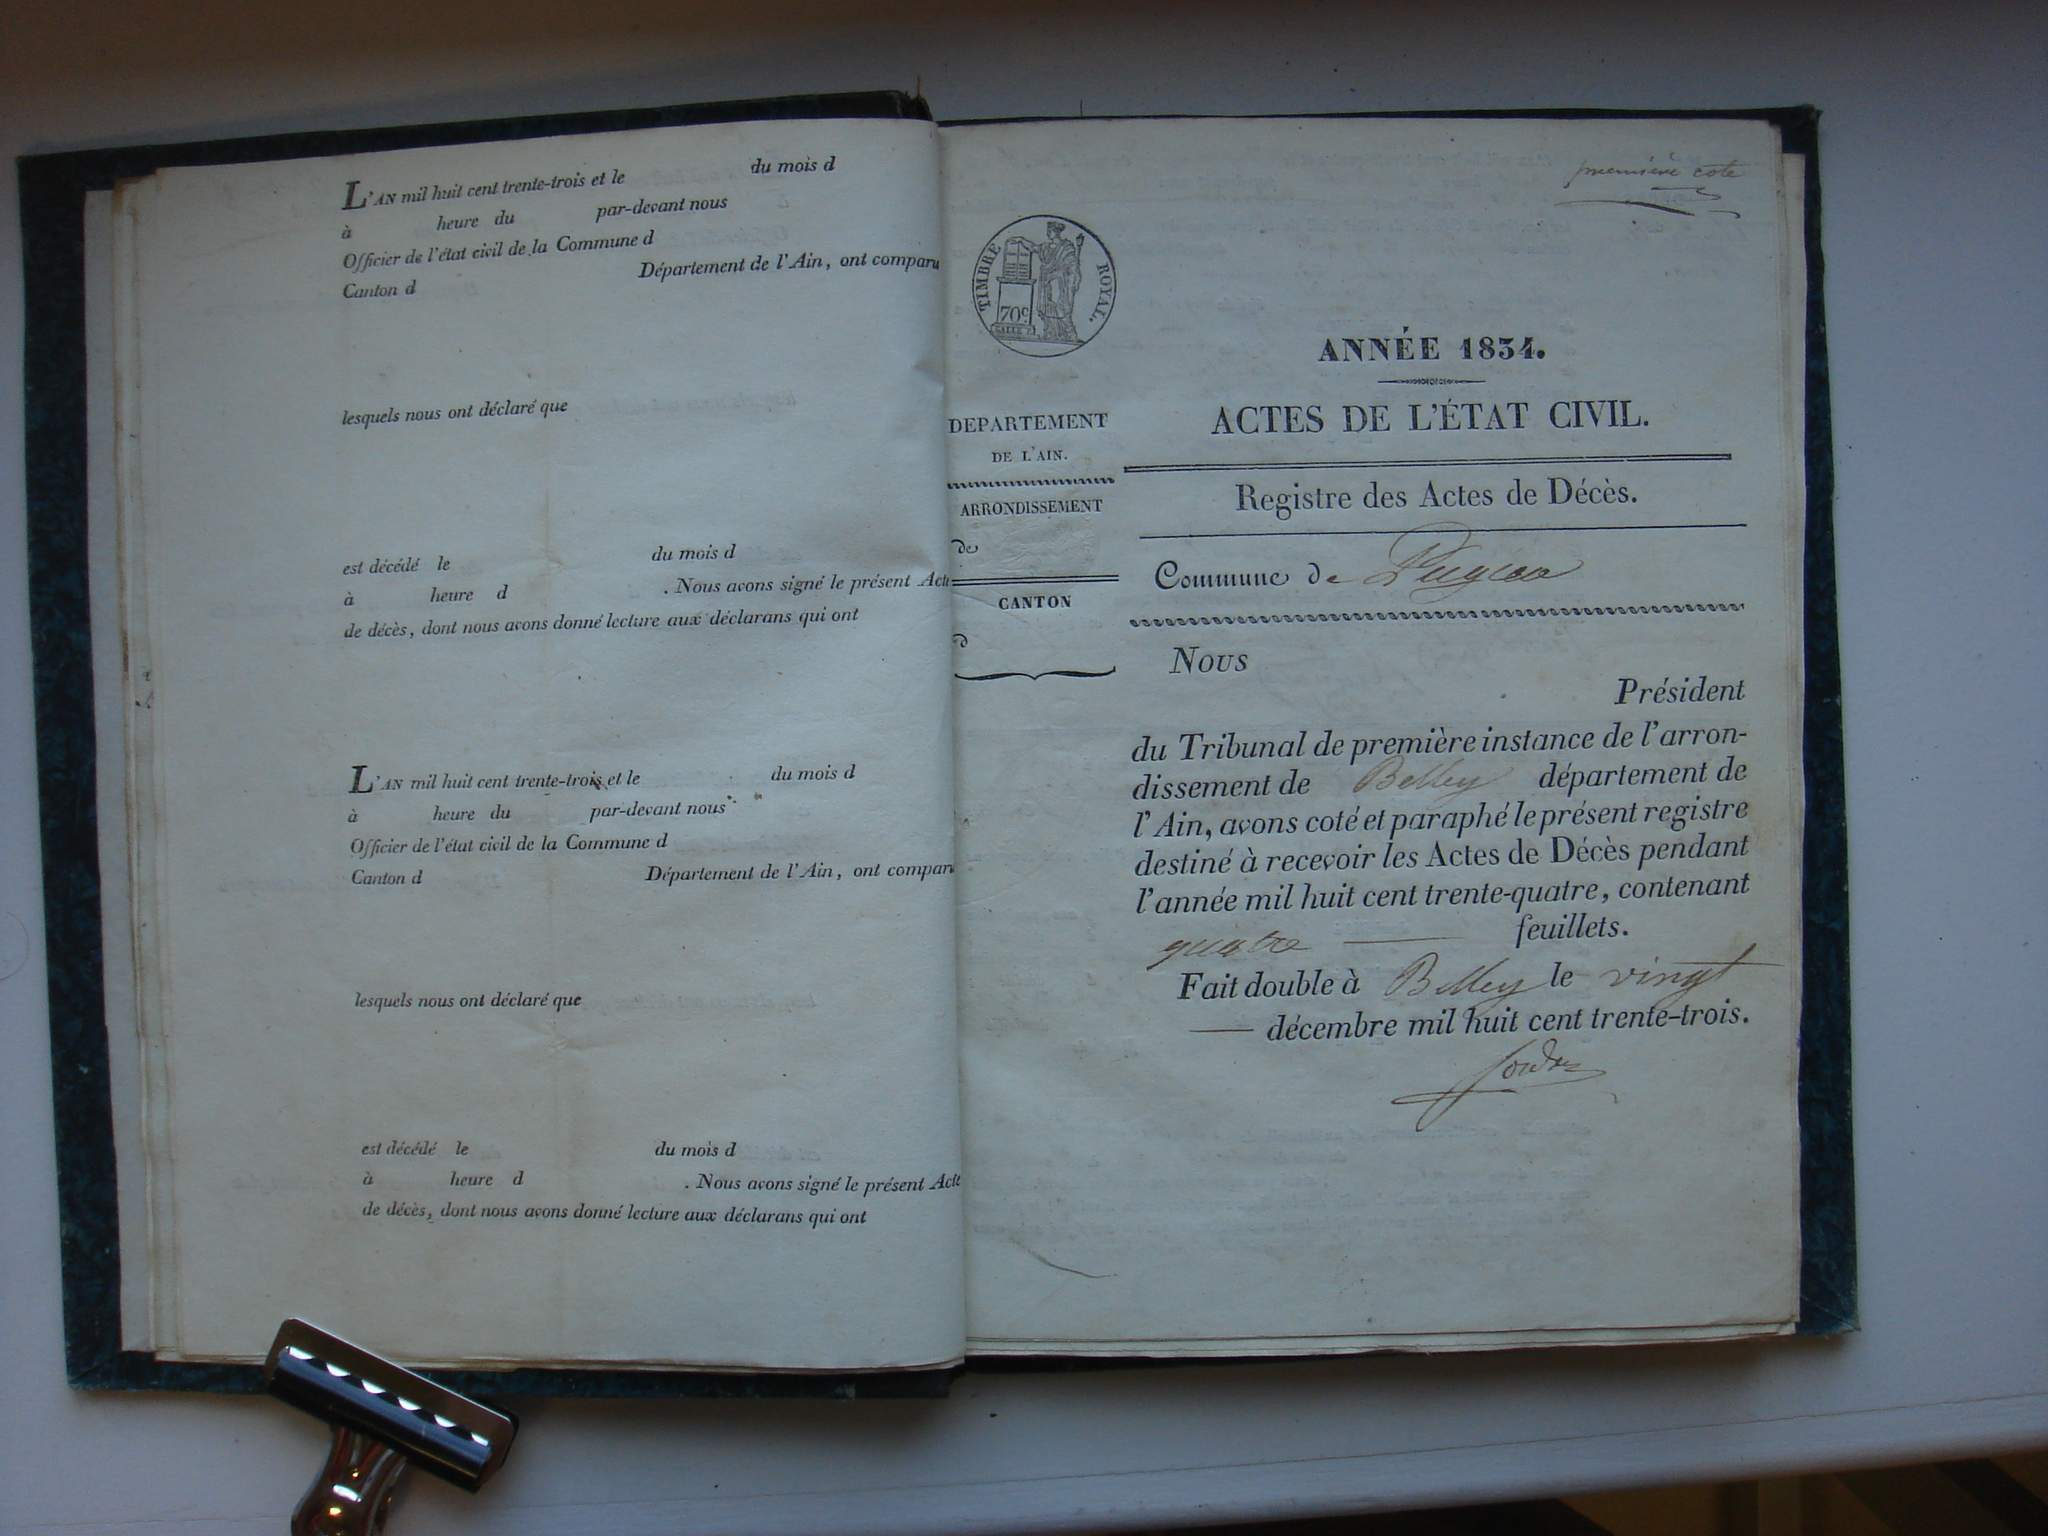 L'AN mil huit cent trente-trois et le du mois d
à heure du par-devant nous
Officier de l'état civil de la Commune d
Canton d Département de l'Ain, ont comparu
lesquels nous ont déclaré que
est décédé le du mois d
à heure d . Nous avons signé le présent Acte
de décès, dont nous avons donné lecture aux déclarans qui ont
L'AN mil huit cent trente-trois et le du mois d
à heure du par-devant nous
Officier de l'état civil de la Commune d
Canton d Département de l'Ain, ont comparu
lesquels nous ont déclaré que
est décédé le du mois d
à heure d . Nous avons signé le présent Acte
de décès, dont nous avons donné lecture aux déclarans qui ont
première cote
TIMBRE ROYAL.
70c
DEPARTEMENT
DE L'AIN.
ARRONDISSEMENT
de
CANTON
d
ANNÉE 1834.
ACTES DE L'ÉTAT CIVIL.
Registre des Actes de Décès.
Commune de Pugieu
Nous
Président
du Tribunal de première instance de l'arron-
dissement de Belley département de
l'Ain, avons coté et paraphé le présent registre
destiné à recevoir les Actes de Décès pendant
l'année mil huit cent trente-quatre, contenant
quatre — feuillets.
Fait double à Belley le vingt
— décembre mil huit cent trente-trois.